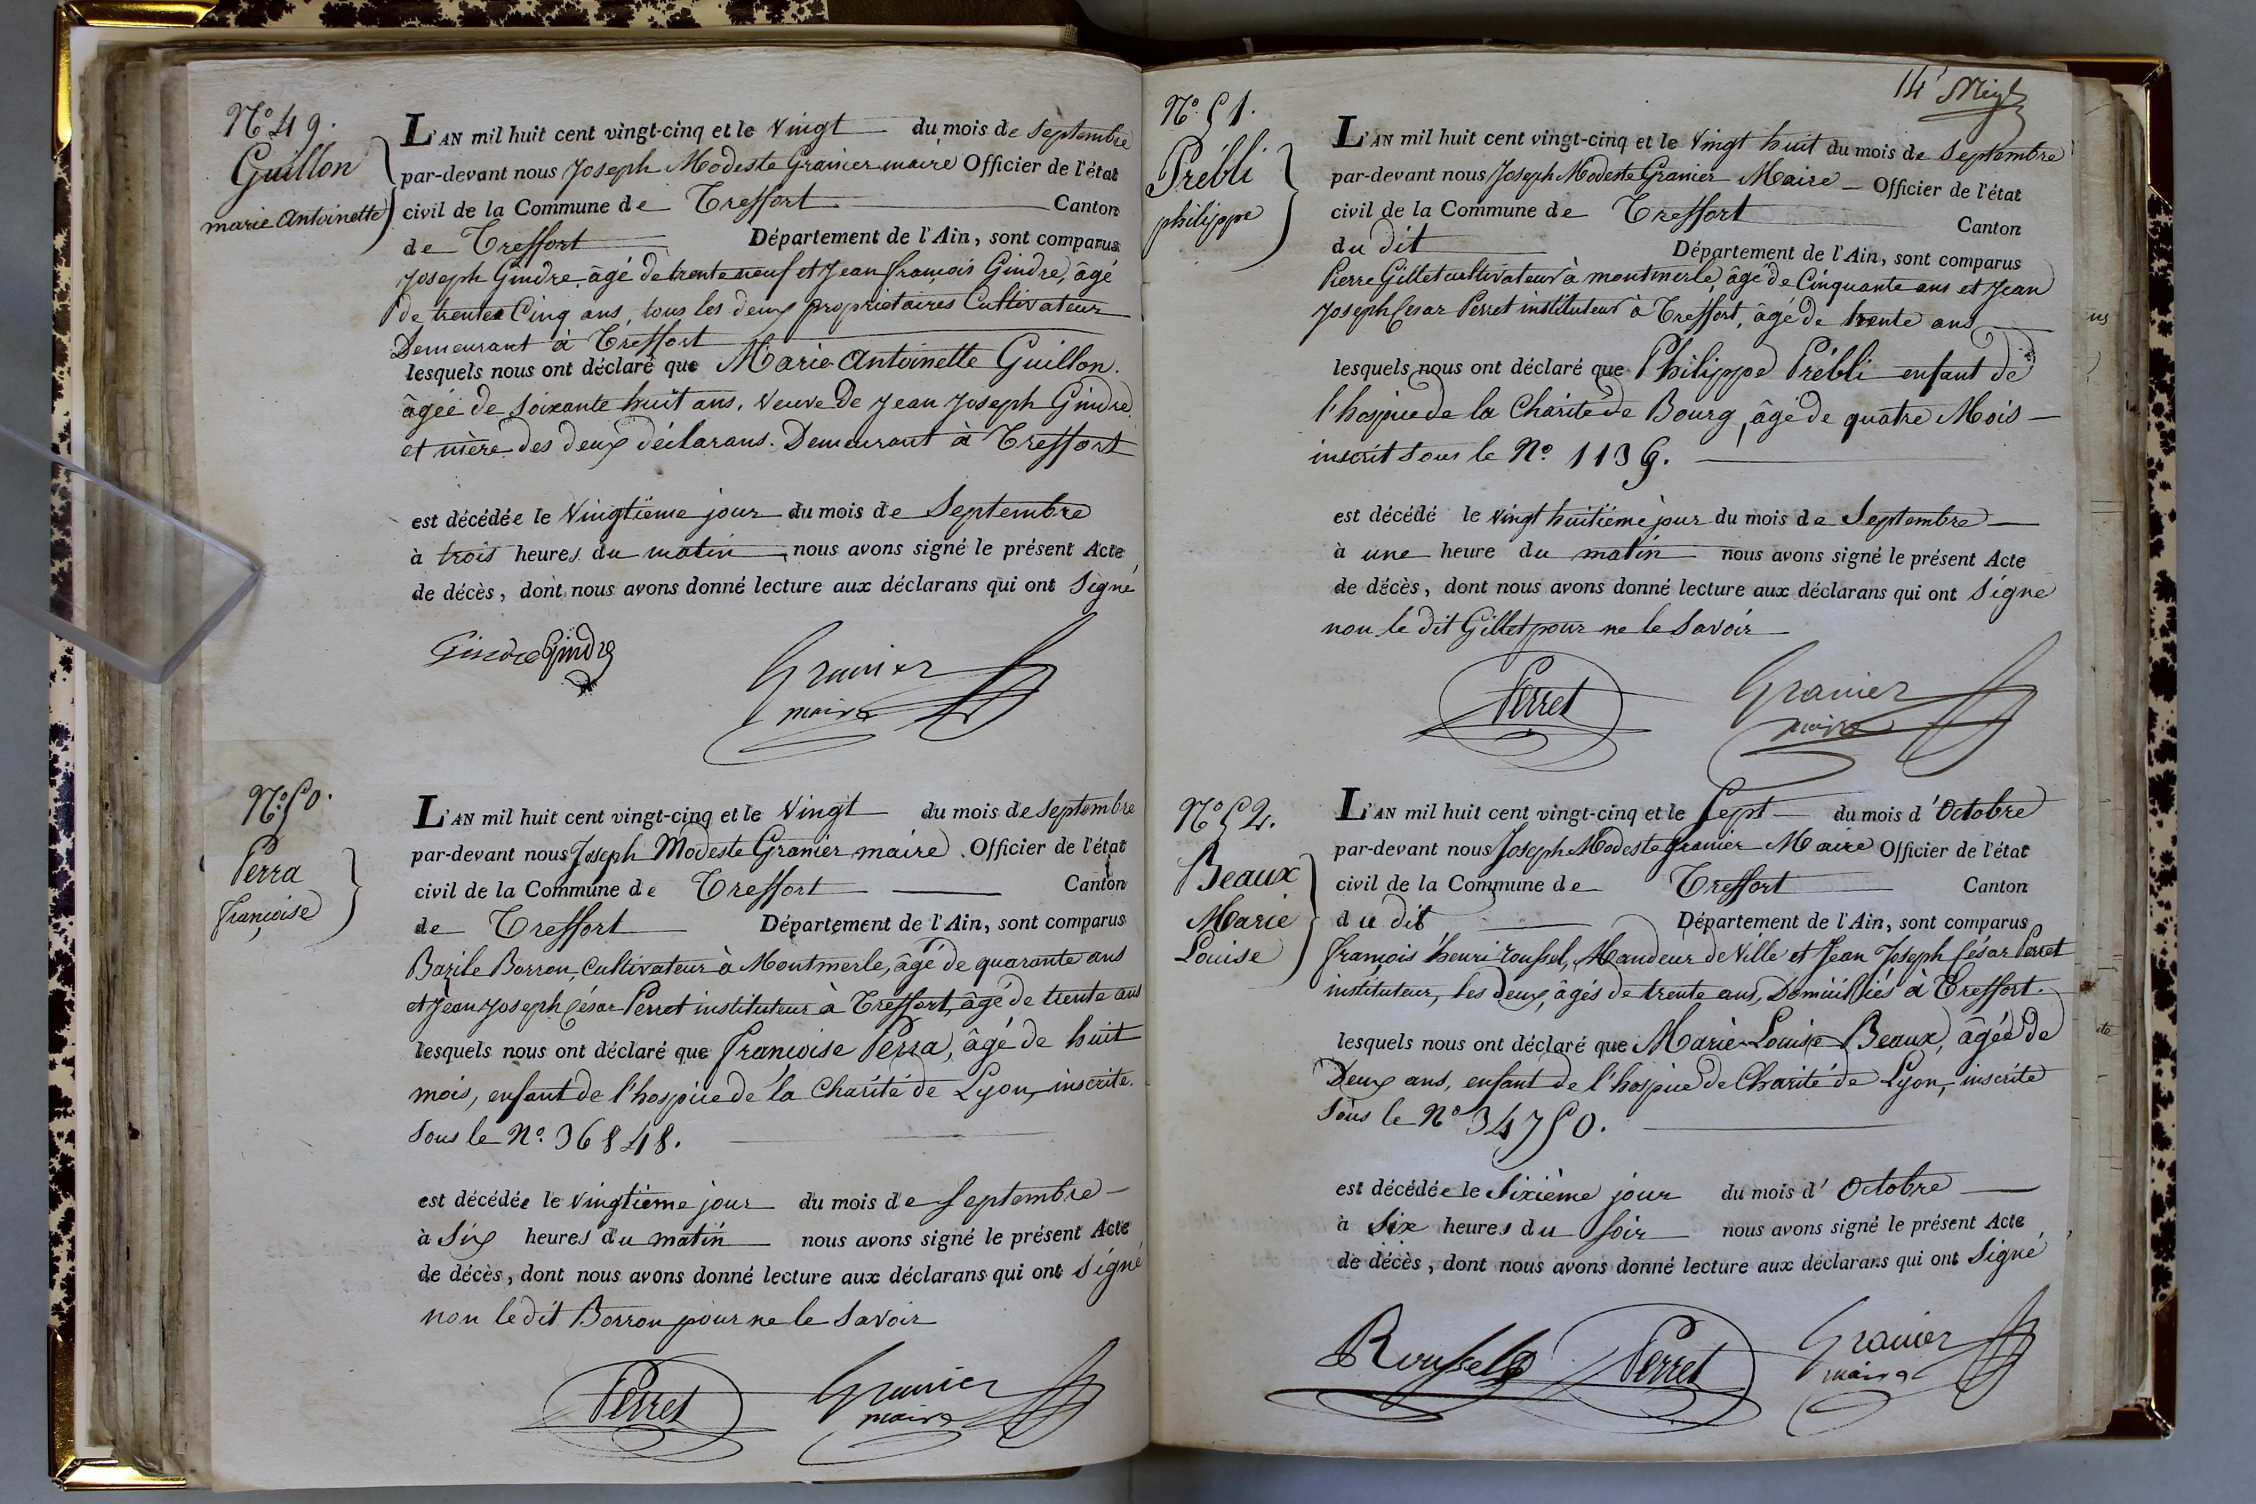 N.º 49.
Guillon
marie Antoinette
L'AN mil huit cent vingt-cinq et le Vingt du mois de Septembre
par-devant nous Joseph Modeste Granier maire Officier de l'état
civil de la Commune de Treffort Canton
de Treffort Département de l'Ain, sont comparus
Joseph Gindre âgé de trente neuf et Jean françois Gindre, âgé
de trente Cinq ans, tous les deux proprietaires Cultivateur
Demeurant à Treffort
lesquels nous ont déclaré que Marie Antoinette Guillon.
âgée de soixante huit ans, Veuve de Jean Joseph Gindre
et mère des deux déclarans. Demeurant à Treffort
est décédée le Vingtième jour du mois de Septembre
à trois heures du matin nous avons signé le présent Acte
de décès, dont nous avons donné lecture aux déclarans qui ont Signé
Gindre Gindre
Granier
maire
N.º 50.
Perra
françoise
L'AN mil huit cent vingt-cinq et le Vingt du mois de septembre
par-devant nous Joseph Modeste Granier maire Officier de l'état
civil de la Commune de Treffort Canton
de Treffort Département de l'Ain, sont comparus
Bazile Borron, Cultivateur à Montmerle, âgé de quarante ans
et Jean Joseph César Perret instituteur à Treffort, âgé de trente ans
lesquels nous ont déclaré que françoise Perra, âgé de huit
mois, enfant de l'hospice de la Charité de Lyon, inscrite
Sous le N.º 36848.
est décédée le vingtième jour du mois de Septembre
à Six heures du matin nous avons signé le présent Acte
de décès, dont nous avons donné lecture aux déclarans qui ont Signé
non le dit Borron pour ne le Savoir
Perret
Granier
maire
14
N.º 51.
Prébli
philippe
L'AN mil huit cent vingt-cinq et le Vingt huit du mois de Septembre
par-devant nous Joseph Modeste Granier Maire Officier de l'état
civil de la Commune de Treffort Canton
du dit Département de l'Ain, sont comparus
Pierre Gillet cultivateur à montmerle, âgé de Cinquante ans et Jean
Joseph Cesar Perret instituteur à Treffort, âgé de trente ans
lesquels nous ont déclaré que Philippe Prébli enfant de
l'hospice de la Charité de Bourg, âgé de quatre Mois
inscrit sous le N.º 1139.
est décédé le vingt huitième jour du mois de Septembre
à une heure du matin nous avons signé le présent Acte
de décès, dont nous avons donné lecture aux déclarans qui ont Signé
non le dit Gillet pour ne le Savoir
Perret
Granier
maire
N.º 52.
Beaux
Marie
Louise
L'AN mil huit cent vingt-cinq et le Sept du mois d'Octobre
par-devant nous Joseph Modeste Granier Maire Officier de l'état
civil de la Commune de Treffort Canton
du dit Département de l'Ain, sont comparus
françois henri roussel, Mandeur de Ville et Jean Joseph César Perret
instituteur, les deux, âgés de trente ans, Domiciliés à Treffort.
lesquels nous ont déclaré que Marie Louise Beaux, âgée de
Deux ans, enfant de l'hospice de Charité de Lyon, inscrite
Sous le N.º 34750.
est décédée le Sixième jour du mois d'Octobre
à Six heures du Soir nous avons signé le présent Acte
de décès, dont nous avons donné lecture aux déclarans qui ont Signé
Roussel
Perret
Granier
maire